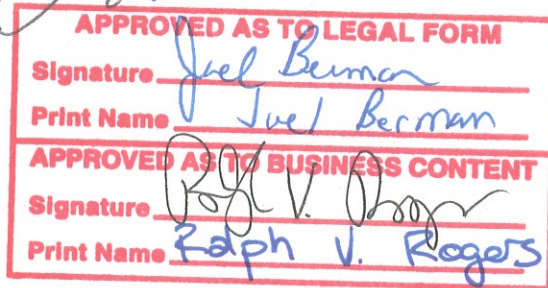 APPROVED AS TO LEGAL FORM
Signature Joel Berman
Print Name Joel Berman
APPROVED AS TO BUSINESS CONTENT
Signature Ralph V. Rogers
Print Name Ralph V. Rogers